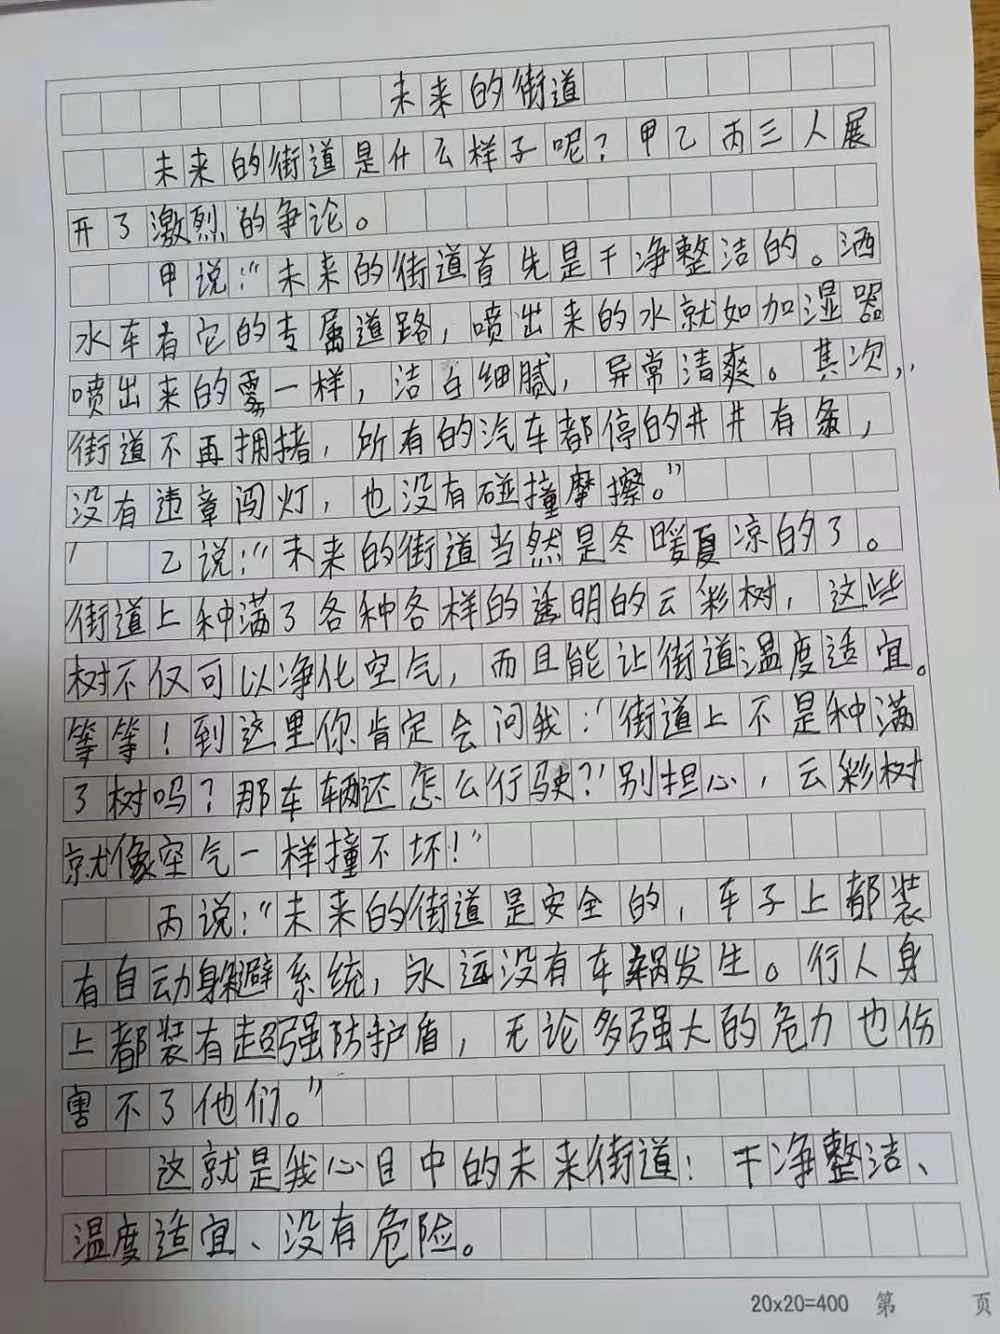 未来的街道
未来的街道是什么样子呢？甲乙丙三人展
开了激烈的争论。
甲说：“未来的街道首先是干净整洁的。洒
水车有它的专属道路，喷出来的水就如加湿器
喷出来的雾一样，洁白细腻，异常清爽。其次，
街道不再拥堵，所有的汽车都停的井井有条，
没有违章闯灯，也没有碰撞摩擦。”
乙说：“未来的街道当然是冬暖夏凉的了。
街道上种满了各种各样的透明的云彩树，这些
树不仅可以净化空气，而且能让街道温度适宜。
等等！到这里你肯定会问我：‘街道上不是种满
了树吗？那车辆还怎么行驶？’别担心，云彩树
就像空气一样撞不坏！”
丙说：“未来的街道是安全的，车子上都装
有自动躲避系统，永远没有车祸发生。行人身
上都装有超强防护盾，无论多强大的危力也伤
害不了他们。”
这就是我心目中的未来街道：干净整洁、
温度适宜、没有危险。
20x20=400 第 页